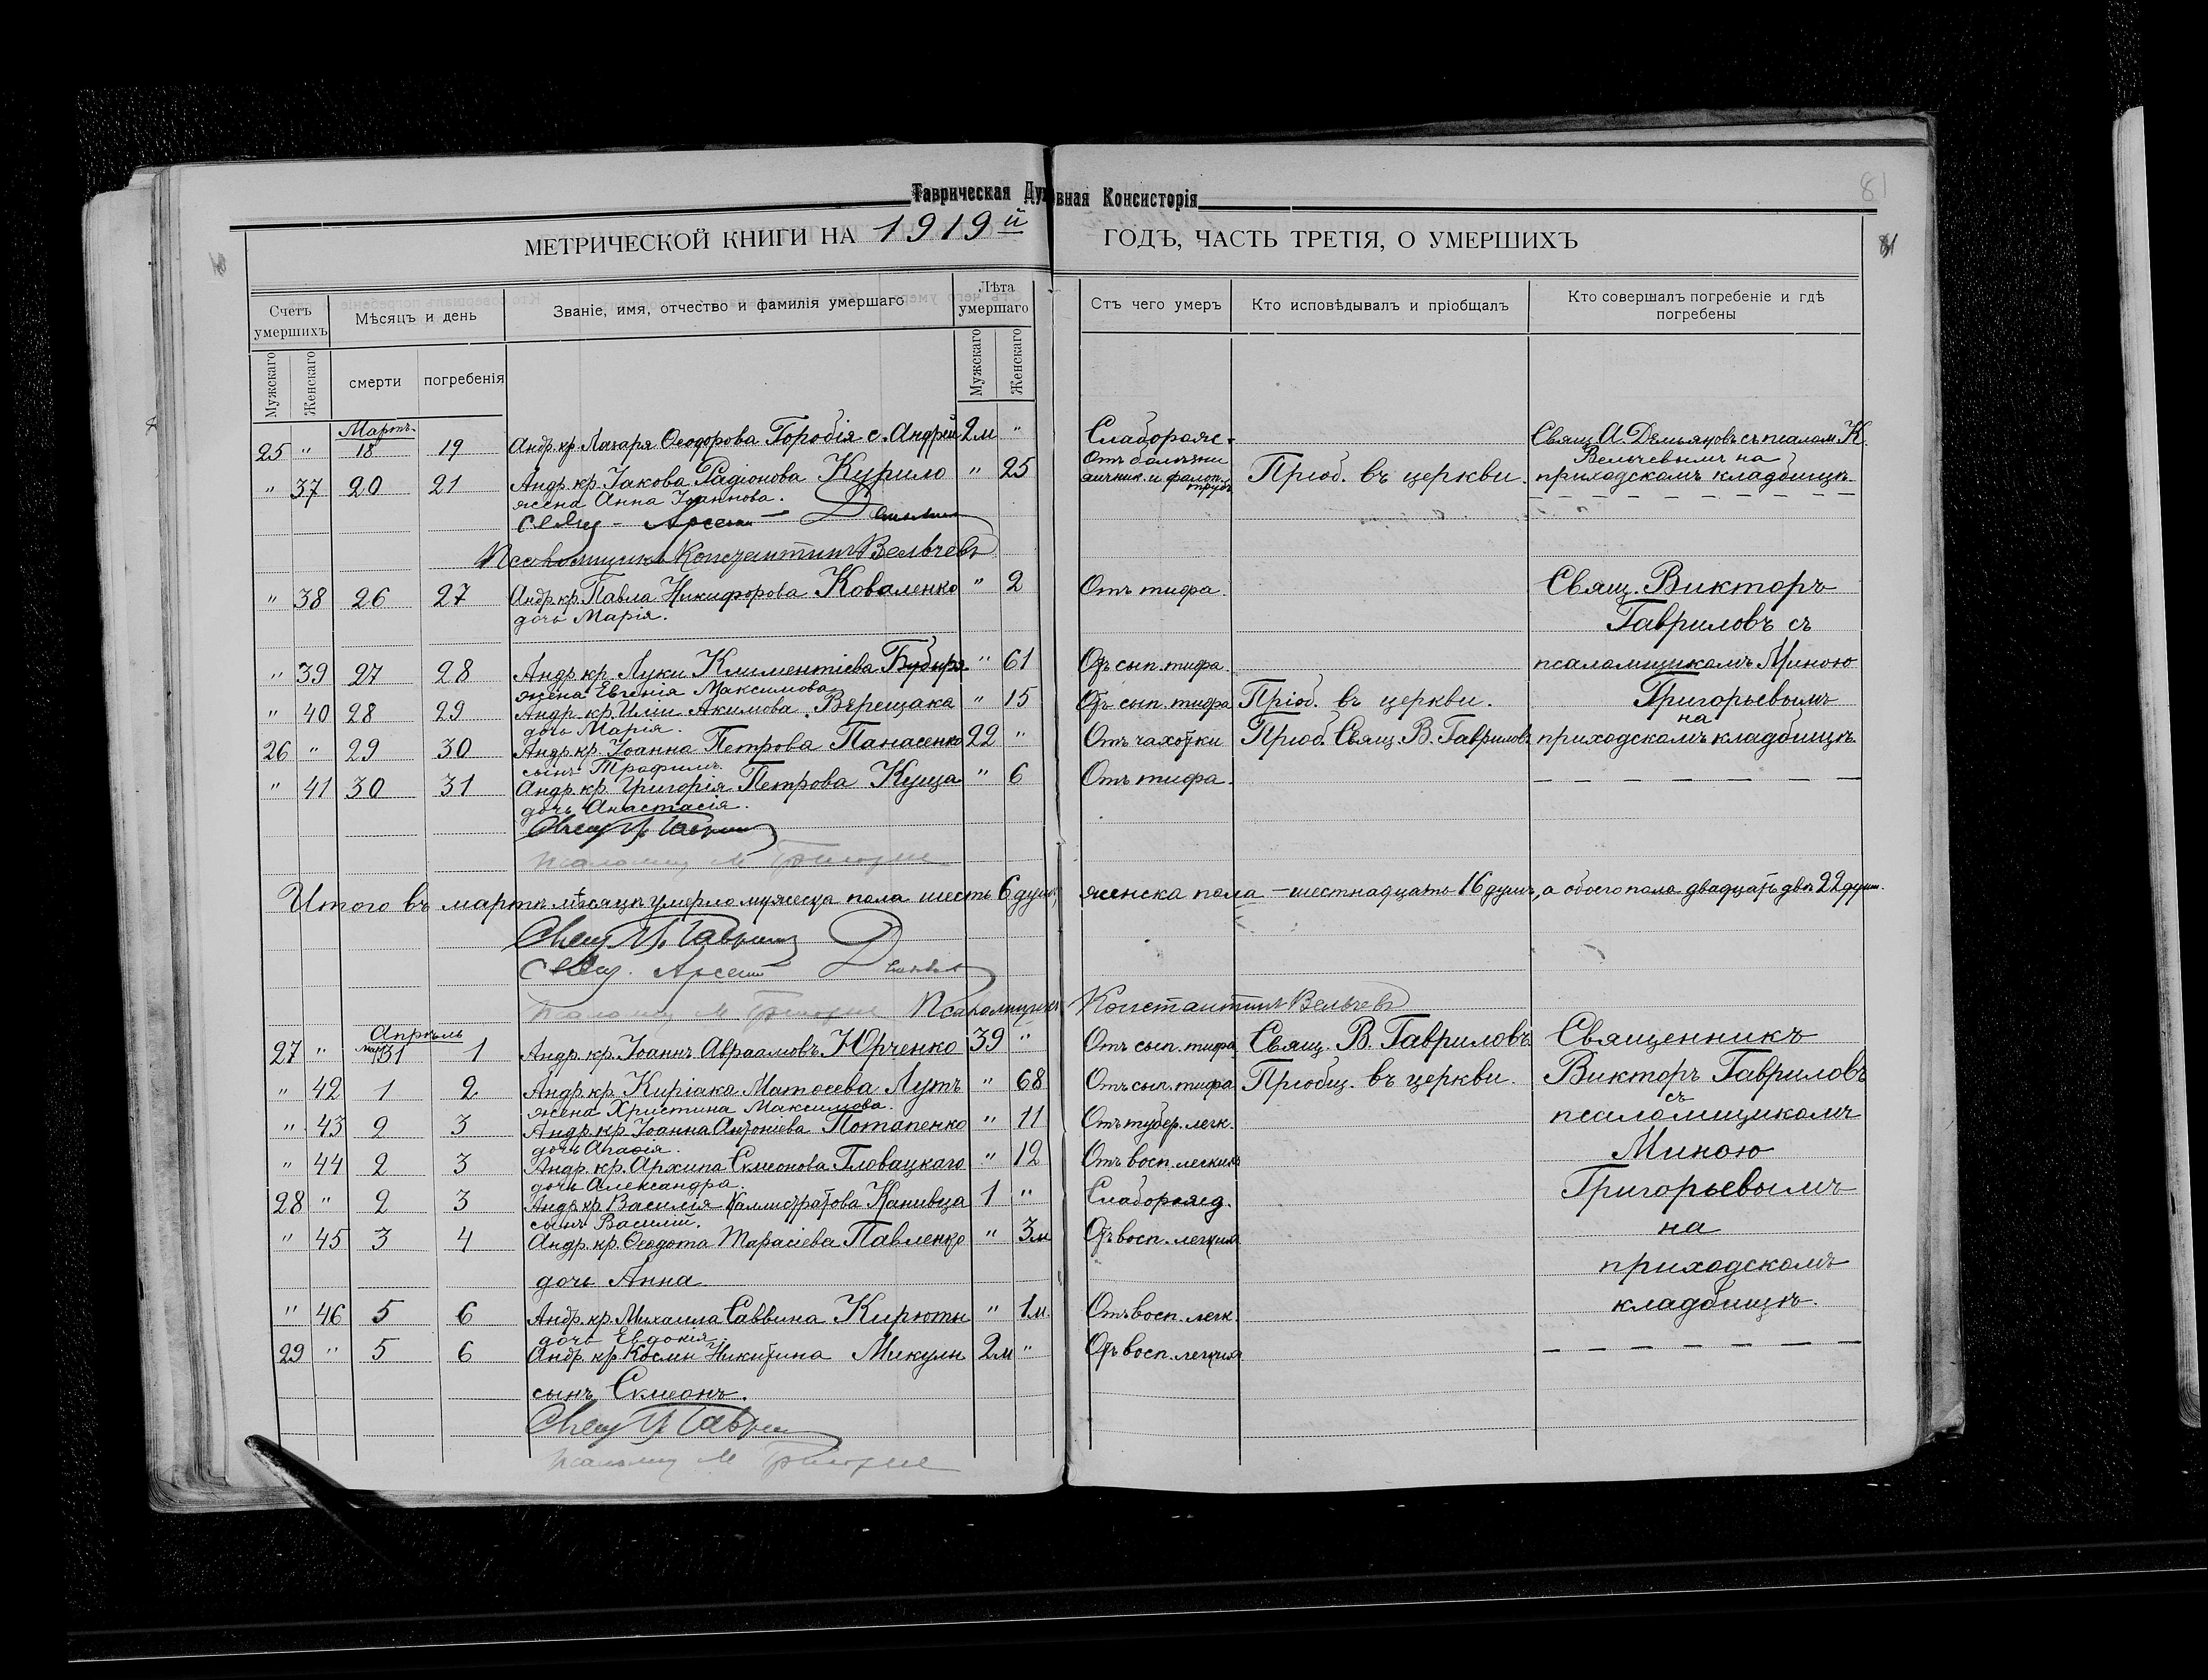 Таврическая Духовная Консисторія
81
МЕТРИЧЕСКОЙ КНИГИ НА 1919й ГОДЪ, ЧАСТЬ ТРЕТІЯ, О УМЕРШИХЪ
Счетъ умершихъ
Мѣсяцъ и день
Званіе, имя, отчество и фамилія умершаго
Лѣта умершаго
Отъ чего умеръ
Кто исповѣдывалъ и пріобщалъ
Кто совершалъ погребеніе и гдѣ погребены
Мужскаго Женскаго смерти погребенія Мужскаго Женскаго
Мартъ
25 " 18 19 Андр. кр. Лазаря Ѳеодорова Горобія с. Андрей 2м " Слаборожд. Свящ. А. Демьяновъ съ псалом. К.
Вельчевымъ на
" 37 20 21 Андр. кр. Іакова Радіонова Курило " 25 Отъ болѣзни яичник. и фалоп. трубъ Пріоб. въ церкви. приходскомъ кладбищѣ.
жена Анна Іоаннова.
Свящ. Арсеній
Псаломщикъ Константинъ Вельчевъ
" 38 26 27 Андр. кр. Павла Никифорова Коваленко " 2 Отъ тифа. Свящ. Викторъ
дочь Марія. Гавриловъ съ
" 39 27 28 Андр. кр. Луки Климентіева Бубыря " 61 Отъ сып. тифа. псаломщикомъ Миною
жена Евгенія Максимова
" 40 28 29 Андр. кр. Иліи Акимова Верещака " 15 Отъ сып. тифа Пріоб. въ церкви. Григорьевымъ
дочь Марія. на
26 " 29 30 Андр. кр. Іоанна Петрова Панасенко 22 " Отъ чахотки Пріоб. Свящ. В. Гавриловъ приходскомъ кладбищѣ.
сынъ Трофимъ
" 41 30 31 Андр. кр. Григорія Петрова Куца " 6 Отъ тифа.
дочь Анастасія.
Свящ. В. Гаврил
Псаломщ М Григорье
Итого въ мартѣ мѣсяцѣ умерло мужеска пола шесть 6 душъ, женска пола – шестнадцать 16 душъ, а обоего пола двадцать двѣ 22 душ.
Свящ. В. Гаврил
Свящ. Арсеній
Псаломщ М Григорье Псаломщикъ Константинъ Вельчевъ
Апрѣль
27 " март 31 1 Андр. кр. Іоаннъ Авраамовъ Юрченко 39 " Отъ сып. тифа Свящ. В. Гавриловъ Священникъ
" 42 1 2 Андр. кр. Киріака Матѳеева Лутъ " 68 Отъ сып. тифа Пріобщ. въ церкви. Викторъ Гавриловъ
жена Христина Максимова. съ
" 43 2 3 Андр. кр. Іоанна Антоніева Потапенко " 11 Отъ тубер. легк. псаломщикомъ
дочь Агаѳія.
" 44 2 3 Андр. кр. Архипа Симеонова Гловацкаго " 12 Отъ восп. легкихъ Миною
дочь Александра.
28 " 2 3 Андр. кр. Василія Каллистратова Канивца 1 " Слаборожд. Григорьевымъ
сынъ Василій. на
" 45 3 4 Андр. кр. Ѳеодота Тарасіева Павленко " 3м Отъ восп. легкихъ
дочь Анна приходскомъ
" 46 5 6 Андр. кр. Михаила Саввина Кирюты " 1м. Отъ восп. легк. кладбищѣ.
дочь Евдокія.
29 " 5 6 Андр. кр. Космы Никитина Микулы 2м " Отъ восп. легкихъ
сынъ Симеонъ.
Свящ. В. Гаврил
Псаломщ М Григорье